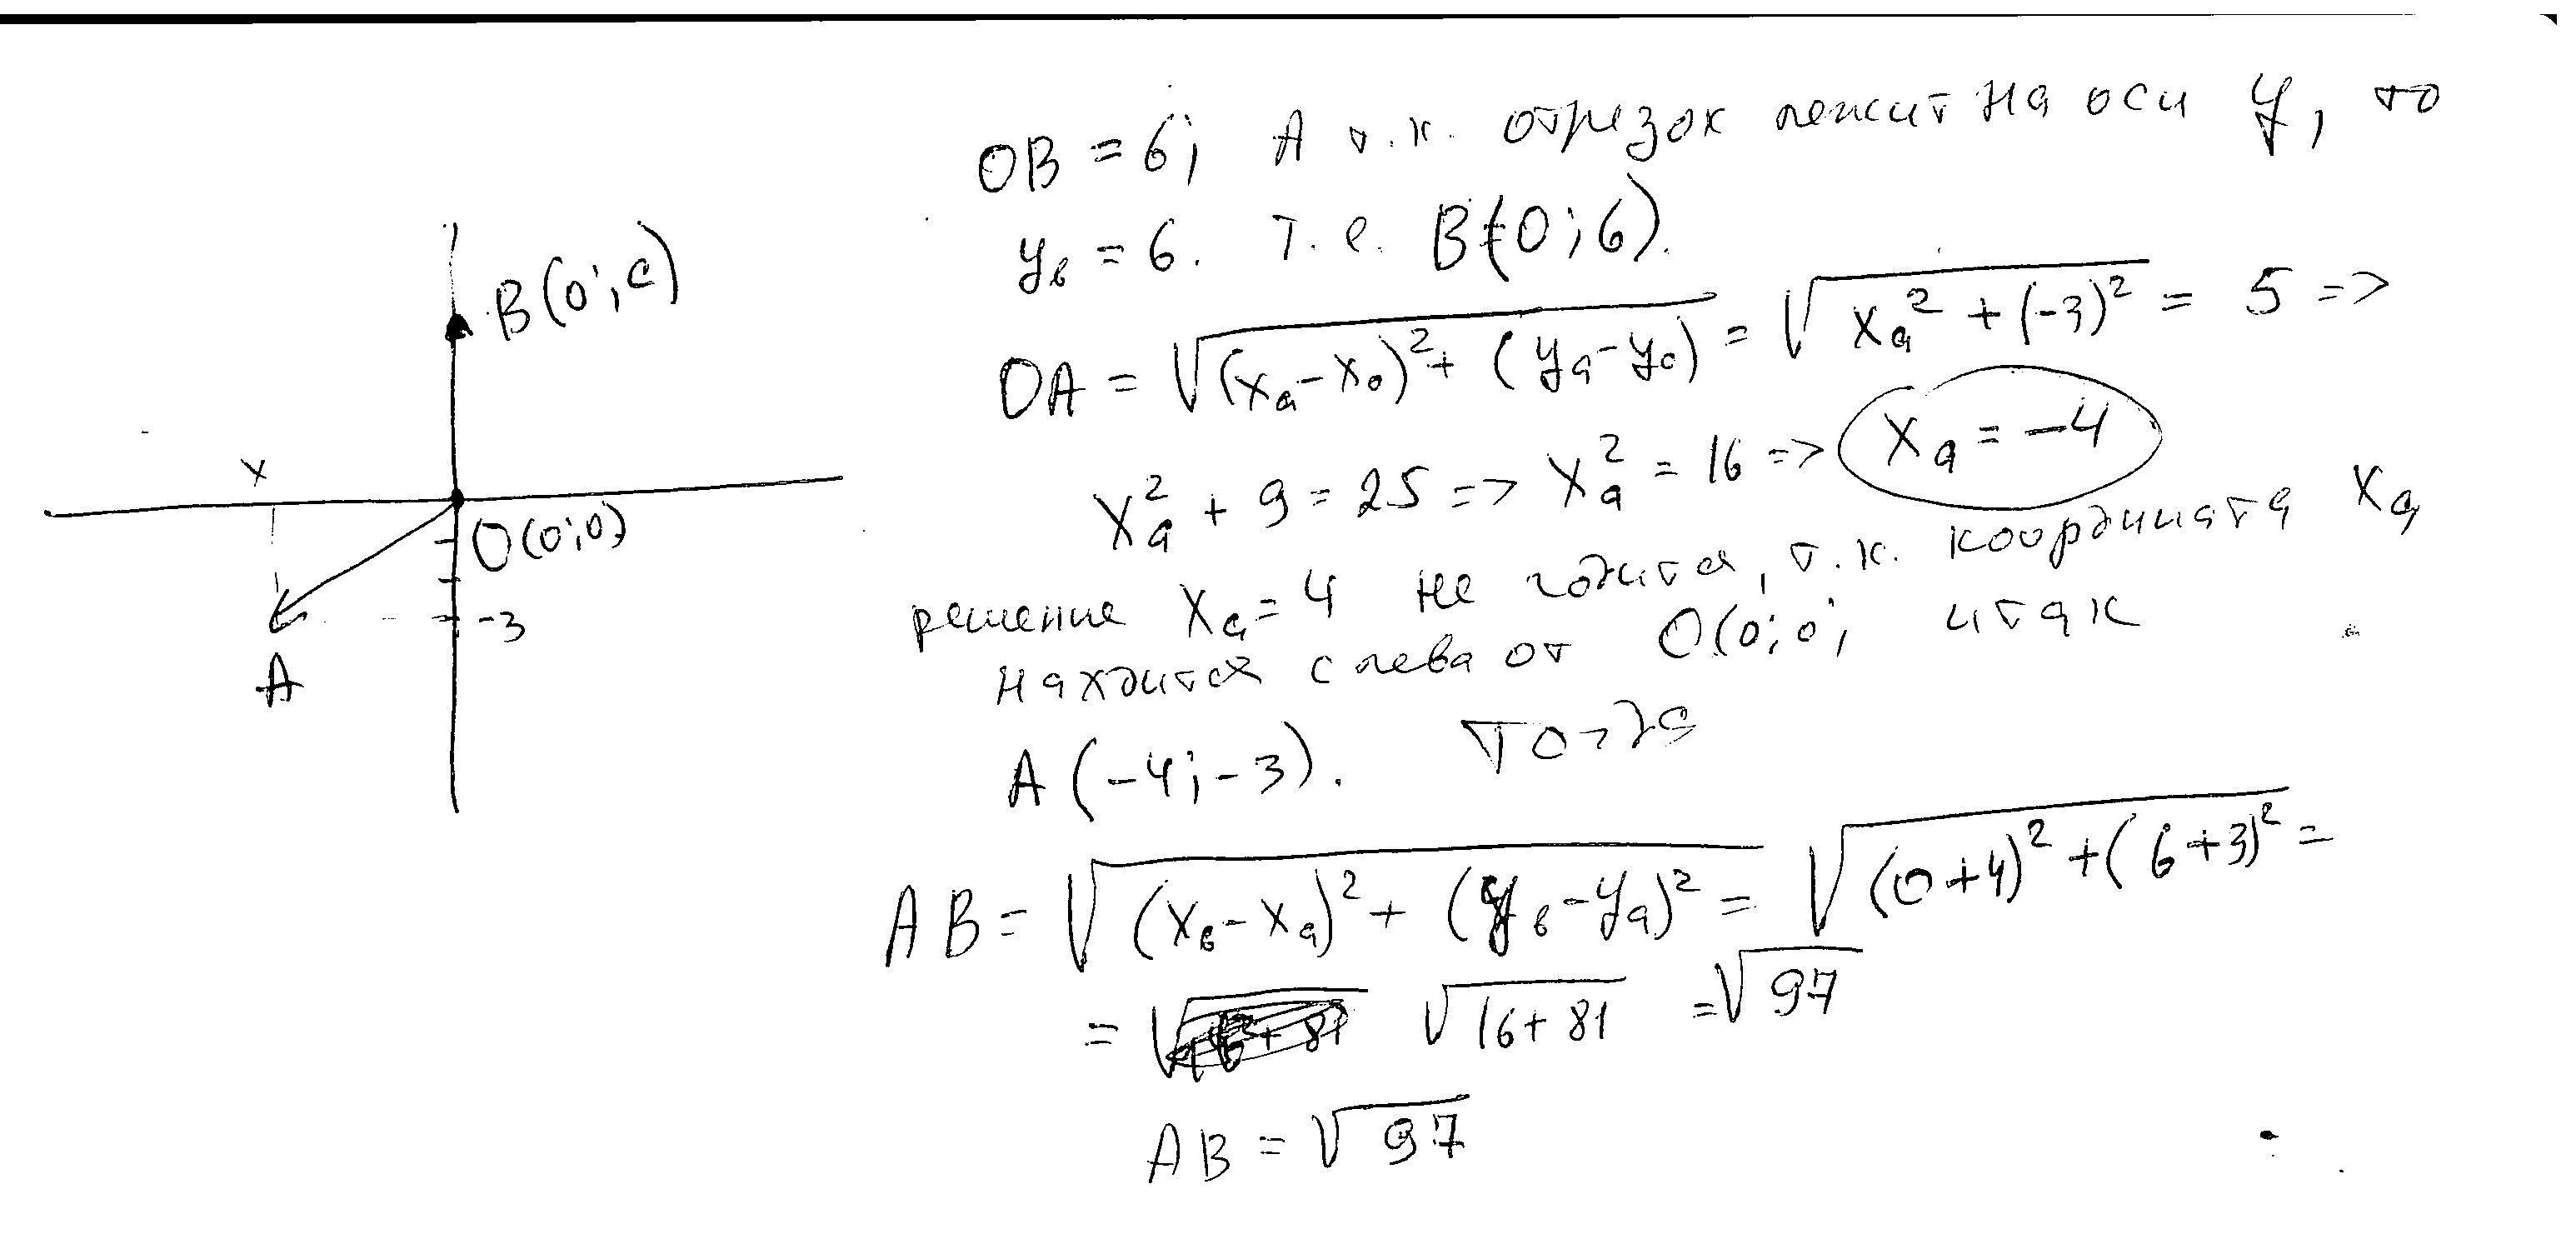 OB = 6; А т.к. отрезок лежит на оси y, то
yв = 6. т.е. B(0;6).
B(0;c)
OA = √(xa-x0)²+(ya-y0) = √xa²+(-3)² = 5 =>
xa²+9=25 => xa²=16 => xa=-4
x
O(0;0)
решение xa=4 не годится, т.к. координата xa
-3
находится слева от O(0;0; итак
A
A(-4;-3). Тогда
AB = √(xв-xa)²+(yв-ya)² = √(0+4)²+(6+3)² =
= √16+81 = √97
AB = √97